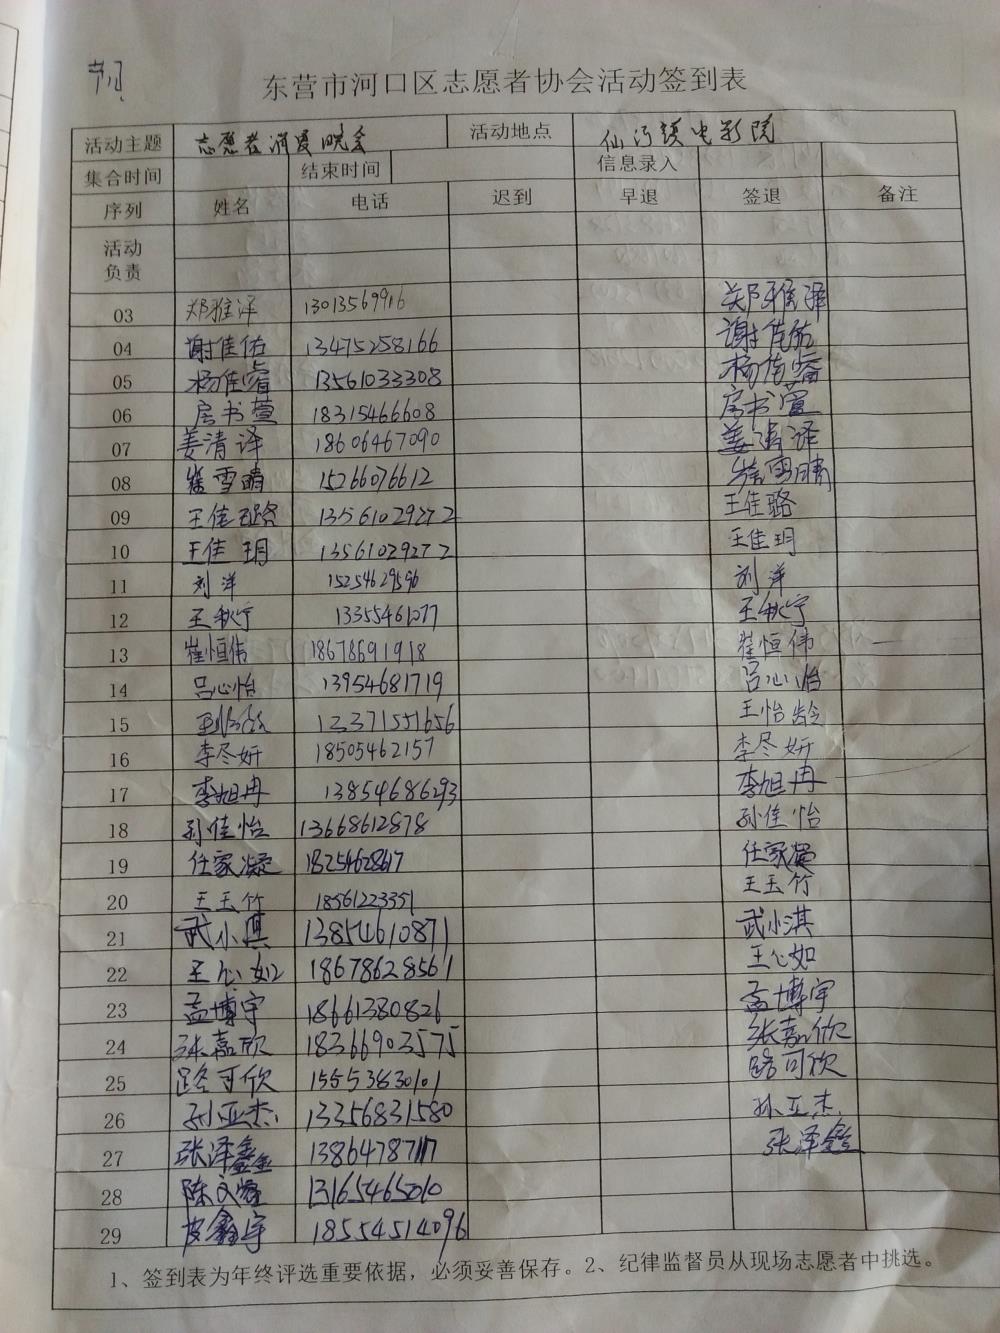 东营市河口区志愿者协会活动签到表
活动主题 志愿者消夏晚会 活动地点 仙河镇电影院
集合时间 结束时间 信息录入
序列 姓名 电话 迟到 早退 签退 备注
活动
负责
03 郑雅泽 13013569916 郑雅泽
04 谢佳佑 13475258166 谢佳佑
05 杨佳睿 13561033308 杨佳睿
06 房书萱 18315466608 房书萱
07 姜清译 18606467090 姜清译
08 崔雪晴 15266076612 崔雪晴
09 王佳璐 13561029272 王佳璐
10 王佳玥 13561029272 王佳玥
11 刘洋 15254629596 刘洋
12 王秋宁 13355461077 王秋宁
13 崔恒伟 18678691918 崔恒伟
14 吕心怡 13954681719 吕心怡
15 12371551656 王怡龄
16 李尽妍 18505462157 李尽妍
17 李旭冉 13854686293 李旭冉
18 孙佳怡 13668612878 孙佳怡
19 任家凝 任家凝
20 王玉竹 18561223351 王玉竹
21 武小淇 13854610871 武小淇
22 王心如 18678628561 王心如
23 孟博宇 18661380826 孟博宇
24 张嘉欣 18366903575 张嘉欣
25 路可欣 15553830101 路可欣
26 孙亚杰 13356831580 孙亚杰
27 张泽鑫 张泽鑫
28 陈文 13165465010
29 皮鑫宇 18554514096
1、签到表为年终评选重要依据，必须妥善保存。2、纪律监督员从现场志愿者中挑选。